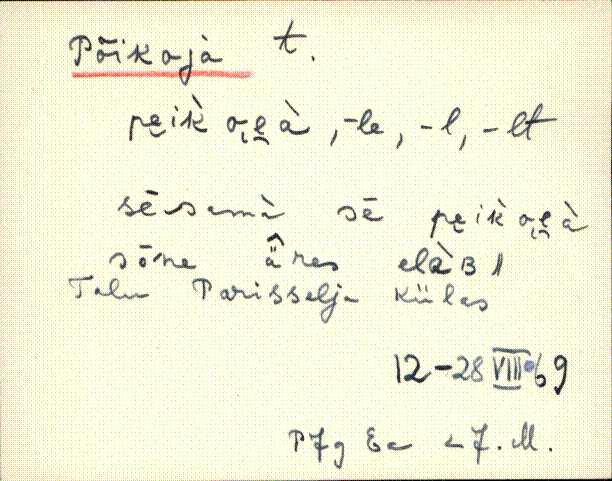 Põikojà t.
pe̮ik̀ o̮e̮à, -le, -l, -lt
sēsamà sē pe̮ik̀ o̮e̮à
sōne ä̂res elàB
Talu Parisselja külas
12-28 VIII 69
PJg